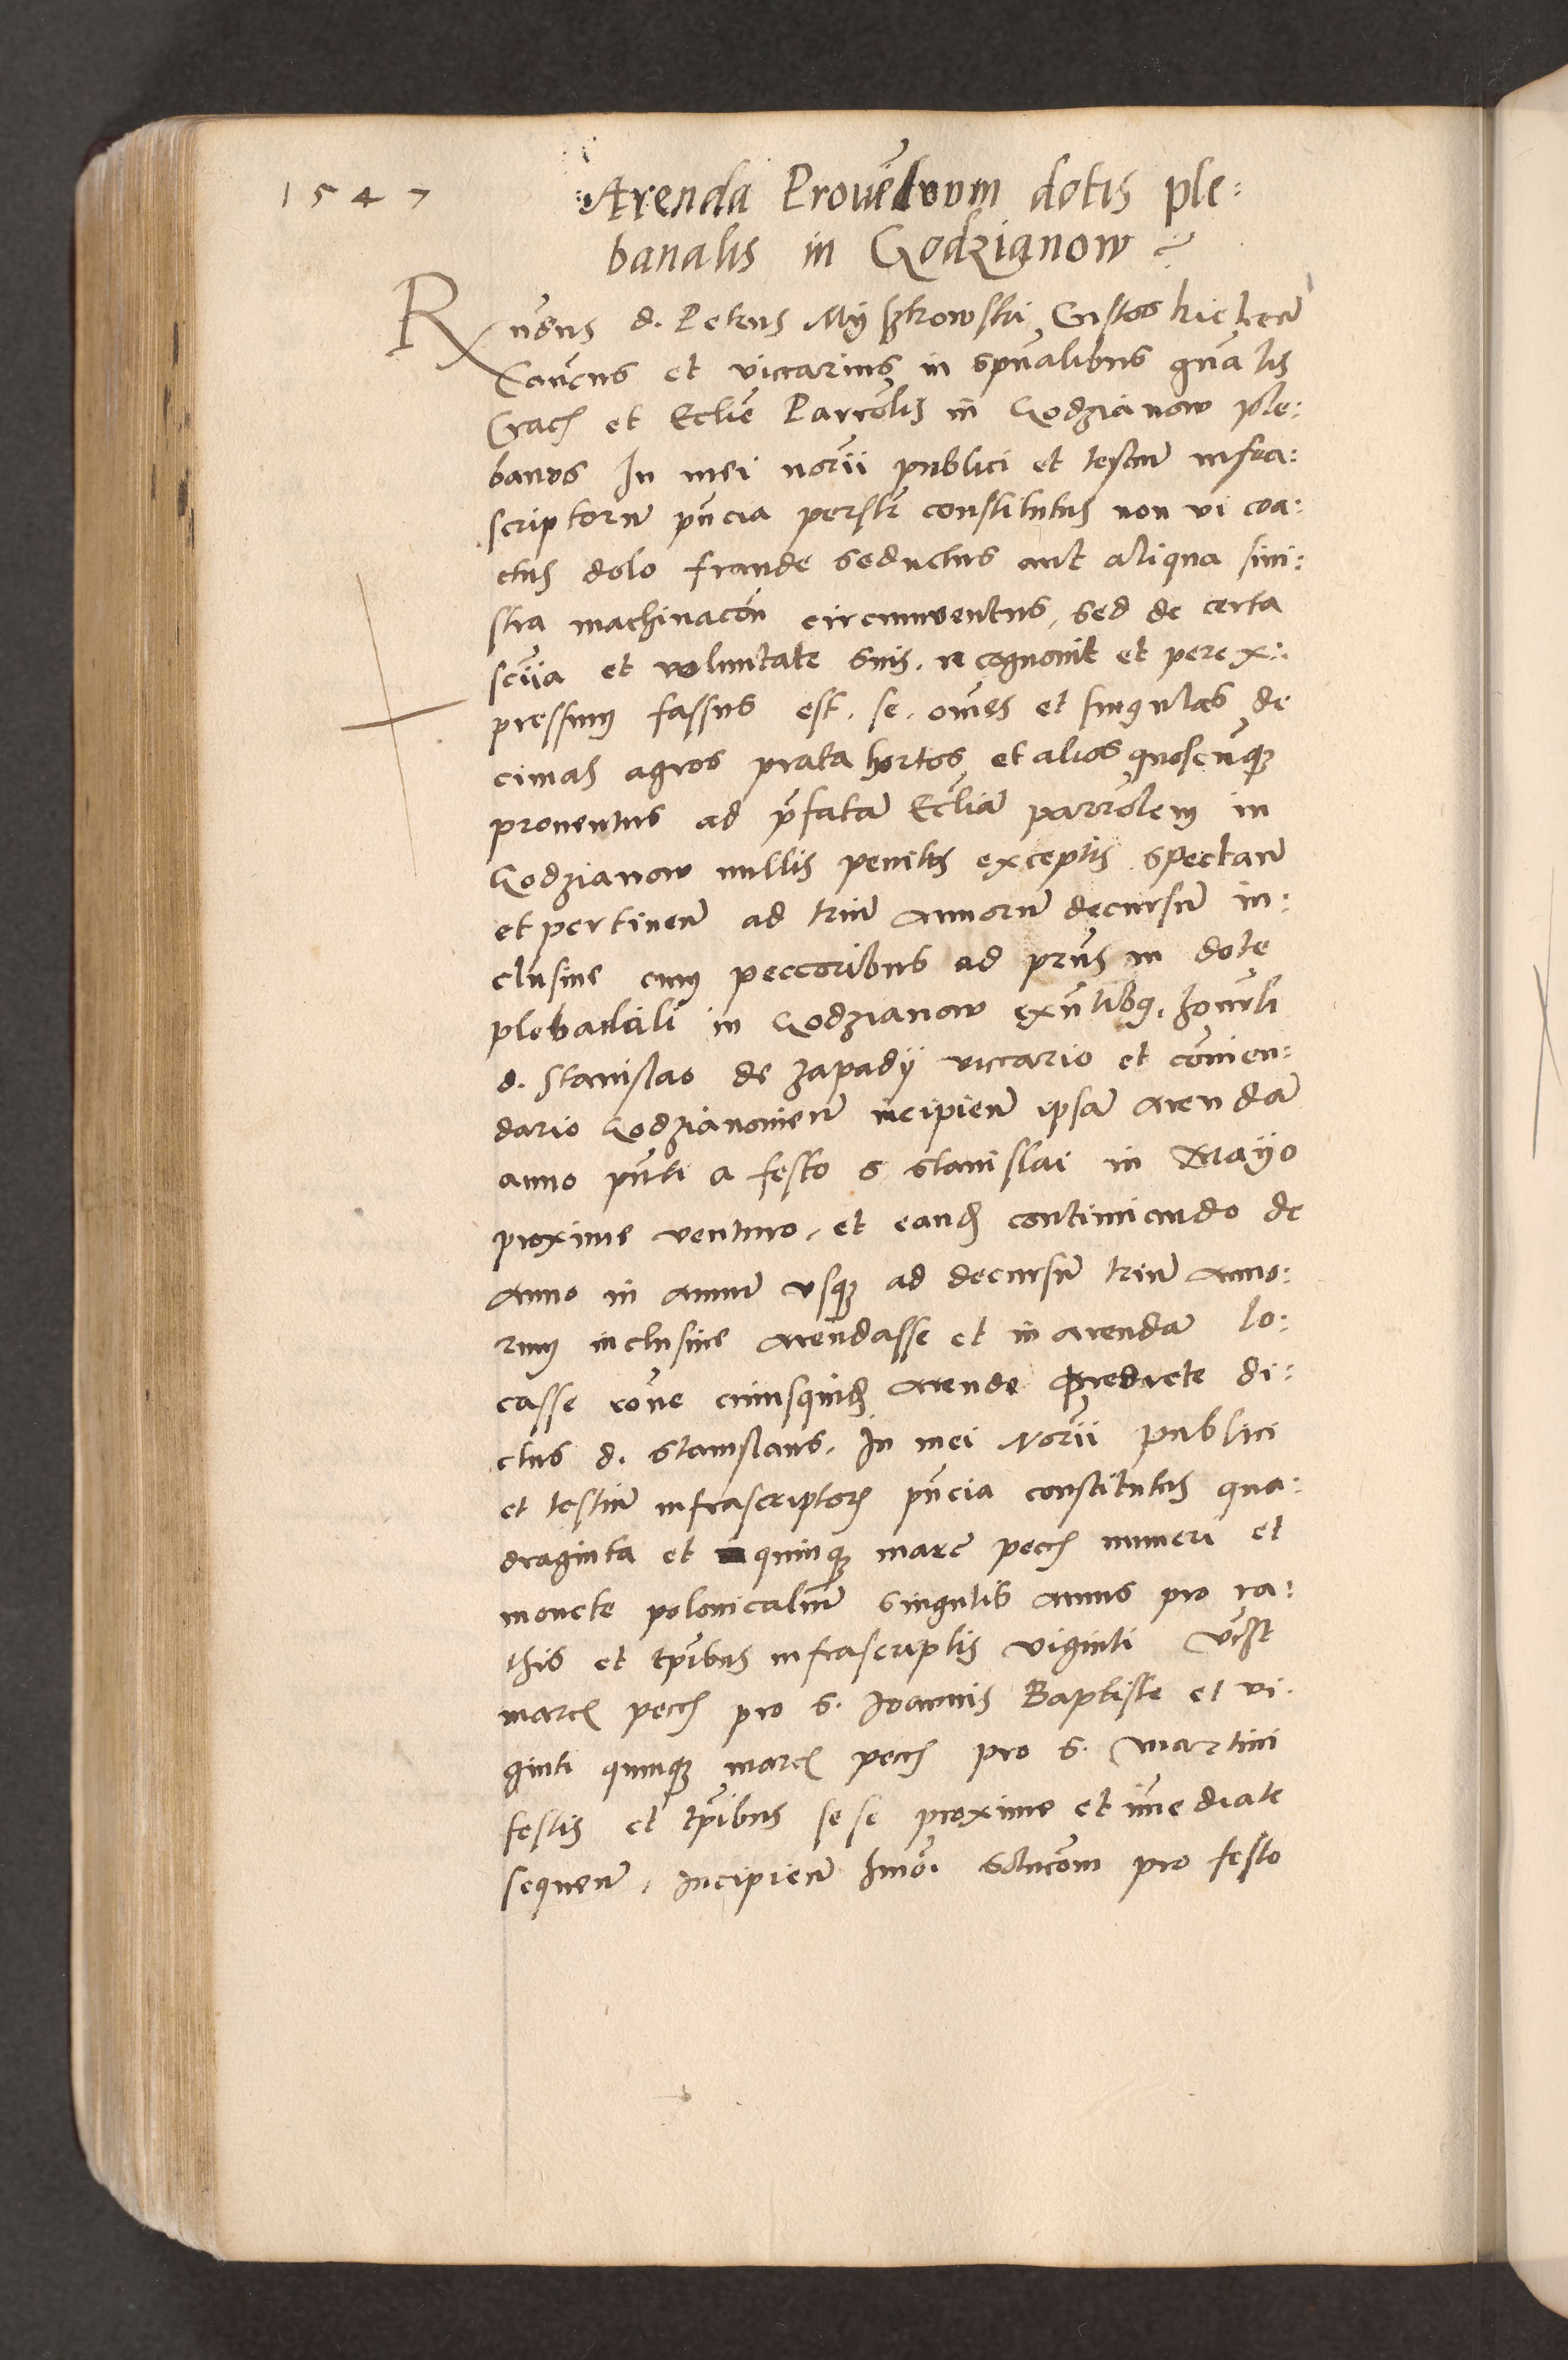 1547
Arenda Prouētuum dotis ple:
banalis in Godzianow
Rndus d. Petrus Myszkowski Custos kielcen̄
Canōcus et viccarius in spūalibus gn̄alis
Crac̄ et Ecclīe Parrōlis in Godzianow ple:
banus In mei norii publici et testium infra:
scriptorū pn̄cia persl̄r constitutus non vi coa:
ctus dolo fraude seductus aut aliqua sini:
stra machinacōn circumventus, sed de certa
scīia et voluntate suis. recognouit et per ex:
pressum fassus est. se. oīnes et singulas de
cimas agros prata hortos et alios quoscūq3
prouentus ad p̄fatā Eccl̄iā parrōlem in
Godzianow nullis penitus exceptis spectan̄
et pertinen̄ ad triū annorū decursū in:
clusiue cum peccoribus ad pn̄s in dote
plebanali in Godzianow exn̄tibq. honrli
d. Stanislao de Zapady viccario et cōmen:
dario Godzianouien̄ incipien̄ ipsā arendā
anno pn̄ti a festo s Stanislai in Mayo
proxime venturo, et eand̄ continuando de
anno in annū vsq3 ad decursū triū anno:
rum inclusiue arendasse et in arendā lo:
casse rōne cuiusquid̄ arende predicte di:
ctus d. Stanislaus. In mei Norii publici
et testiū infrascriptor̄ pn̄cia constitutus qua:
draginta et quinq3 marc̄ pecc̄ numeri et
monete polonicaliū singulis annis pro ra:
this et tp̄ibus infrascriptis viginti
marc̄ pecc̄ pro s. Joannis Baptiste et vi:
ginti quinq3 marc̄ pecc̄ pro s. Martini
festis et tp̄ibus se se proxime et im̄ediate
sequen̄, incipien̄ hmōi. solucōm pro festo